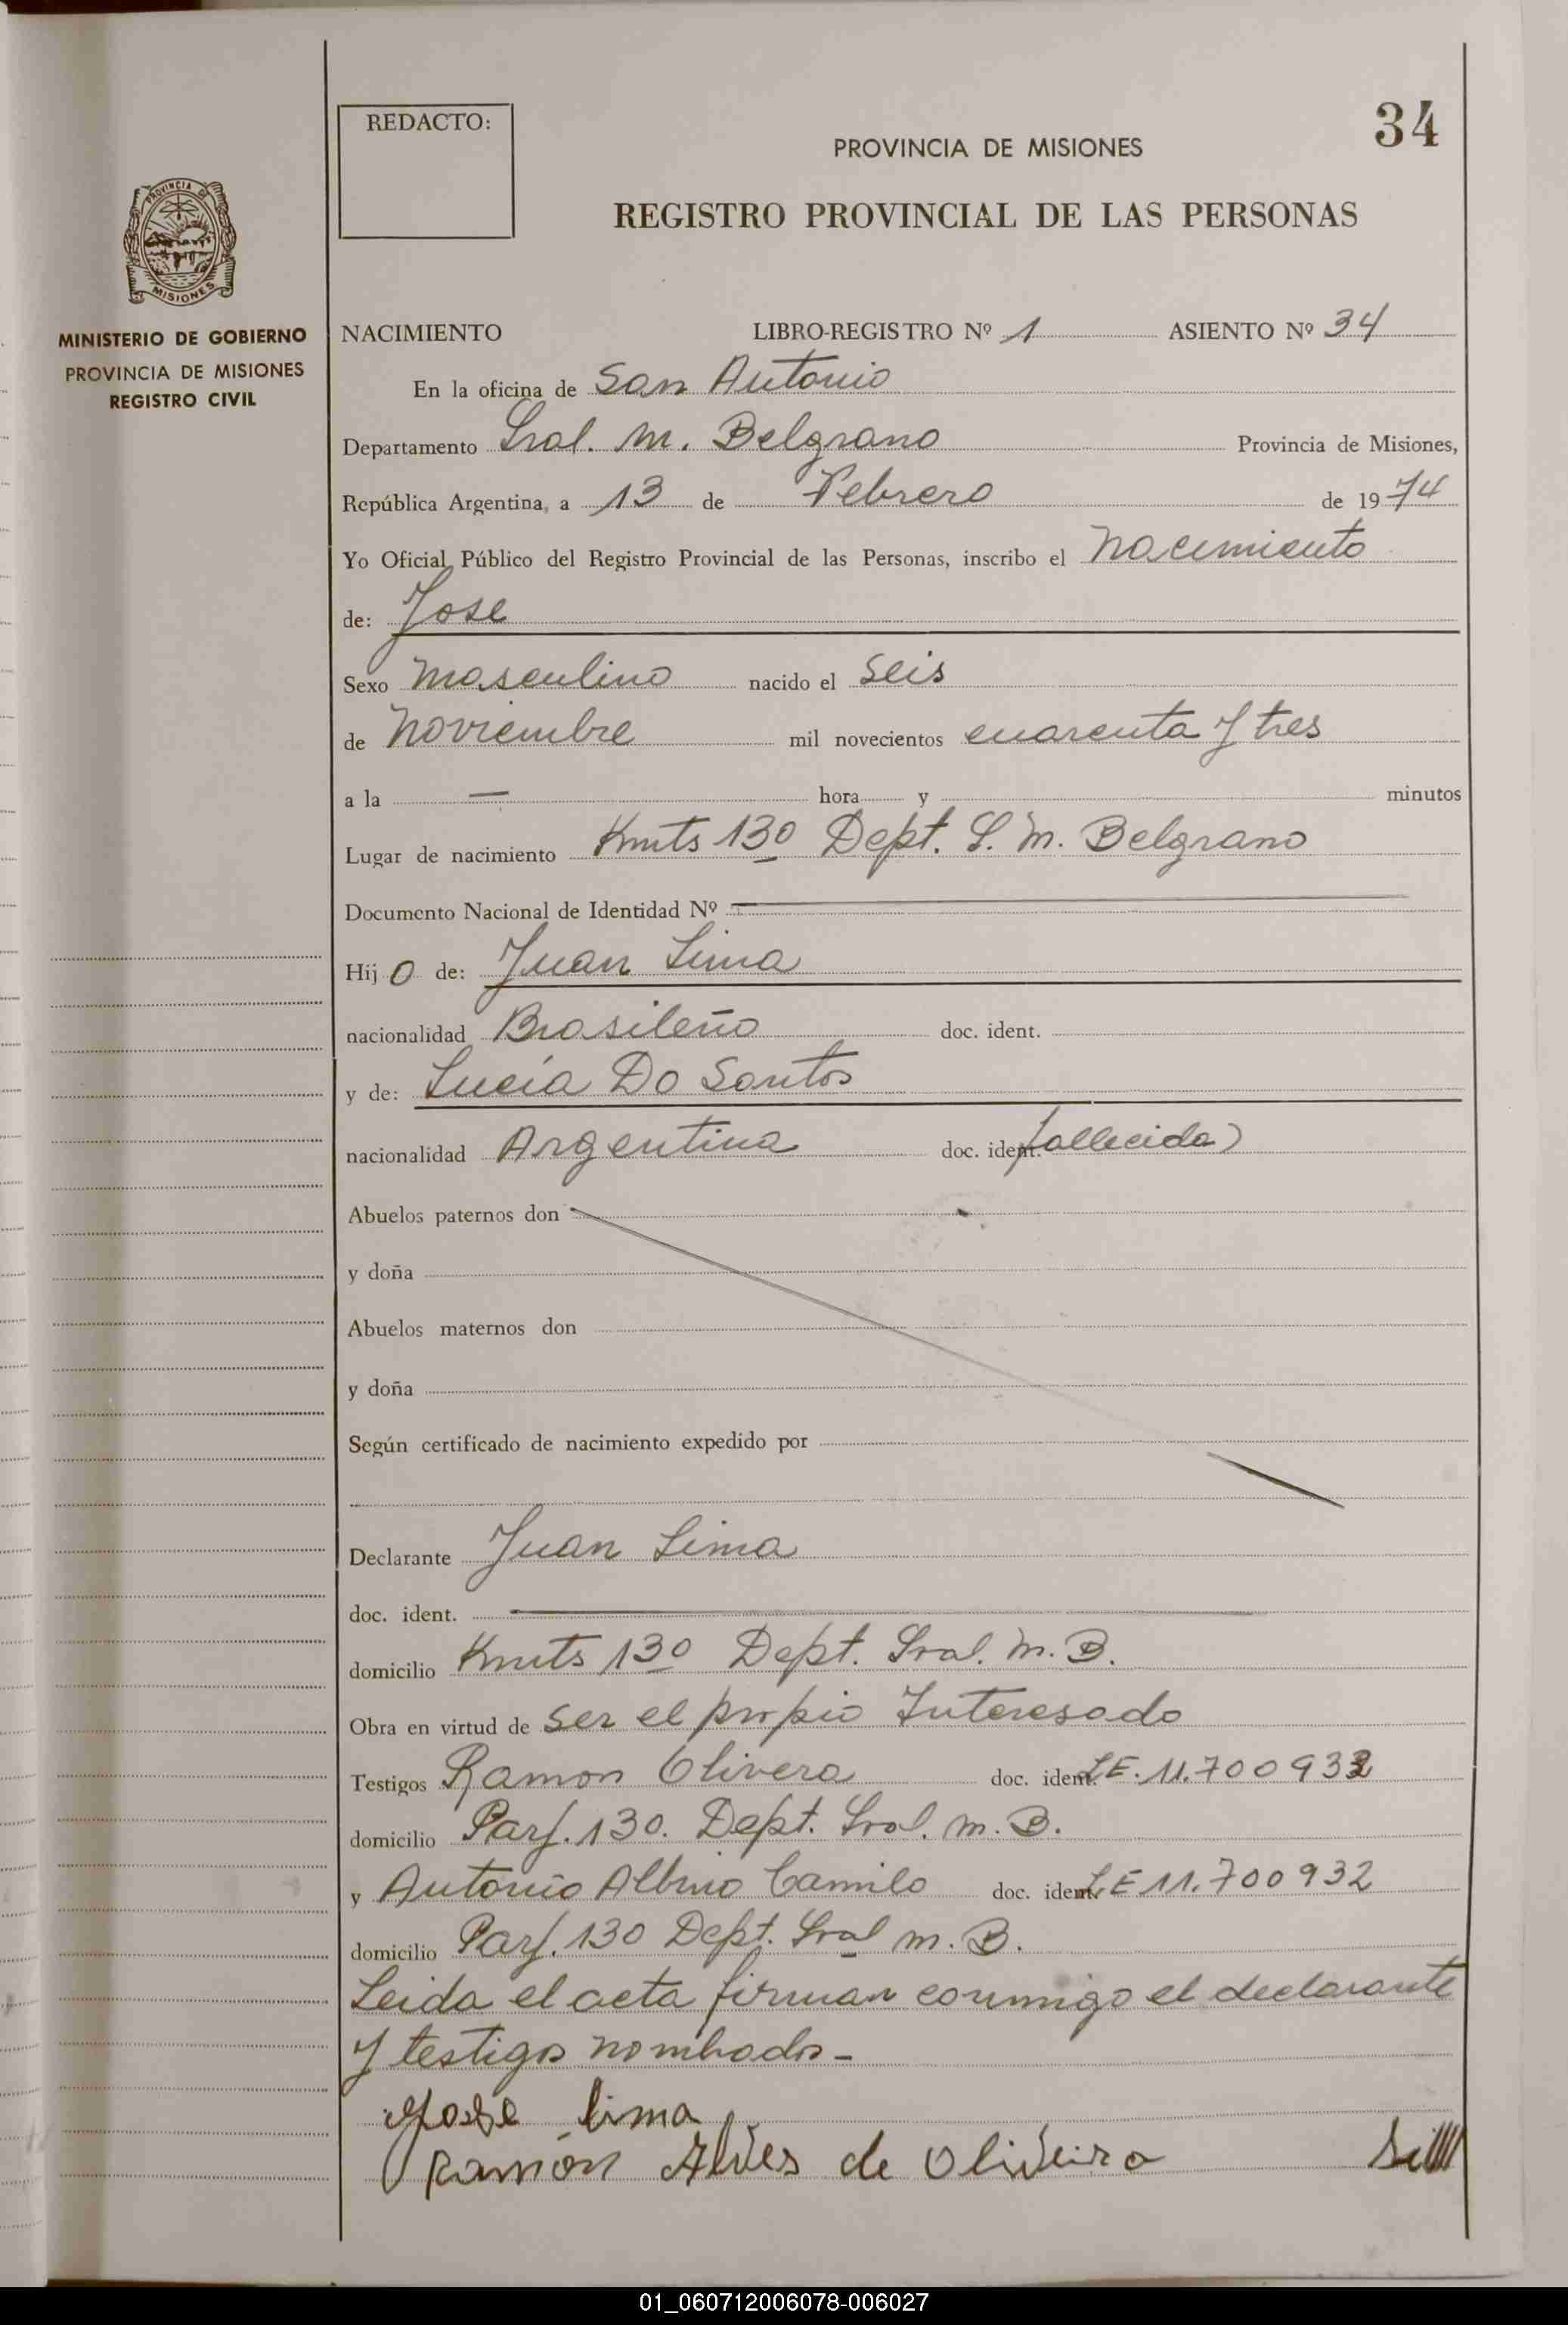 34
REDACTO:
PROVINCIA DE MISIONES
REGISTRO PROVINCIAL DE LAS PERSONAS
PROVINCIA DE
MISIONES
MINISTERIO DE GOBIERNO
PROVINCIA DE MISIONES
REGISTRO CIVIL
NACIMIENTO LIBRO-REGISTRO Nº 1 ASIENTO Nº 34
En la oficina de San Antonio
Departamento Gral. M. Belgrano Provincia de Misiones,
República Argentina, a 13 de Febrero de 1974
Yo Oficial Público del Registro Provincial de las Personas, inscribo el nacimiento
de: Jose
Sexo masculino nacido el seis
de noviembre mil novecientos cuarenta y tres
a la — hora y minutos
Lugar de nacimiento Kmts 130 Dept. G. M. Belgrano
Documento Nacional de Identidad Nº
Hijo de: Juan Lima
nacionalidad Brasileño doc. ident.
y de: Lucía Do Santos
nacionalidad Argentina doc. ident. fallecida)
Abuelos paternos don
y doña
Abuelos maternos don
y doña
Según certificado de nacimiento expedido por
Declarante Juan Lima
doc. ident.
domicilio Kmts 130 Dept. Gral. M. B.
Obra en virtud de ser el propio Interesado
Testigos Ramon Olivera doc. ident. LE. 11.700933
domicilio Parj. 130. Dept. Gral. M. B.
y Antonio Albino Camilo doc. ident. LE 11.700932
domicilio Parj. 130 Dept. Gral M. B.
Leida el acta firman conmigo el declarante
y testigos nombrados -
Jose lima
Ramón Alves de Oliveira
01_060712006078-006027